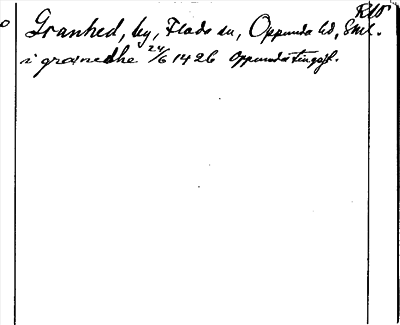 RLO
Granhed, by, Floda sn, Oppunda hd, Sml.
i granedhe 24/6 1426 Oppunda tingspl.